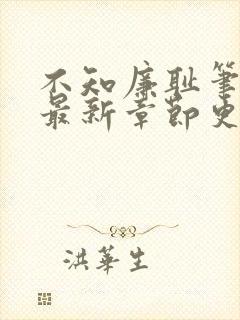 不知廉耻筆
最新章節史
洪華生